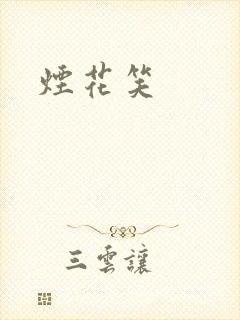 煙花笑
三雲讓